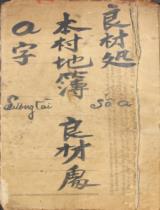 良材処
本村地簿
a字
Lương tài
số a
良材處